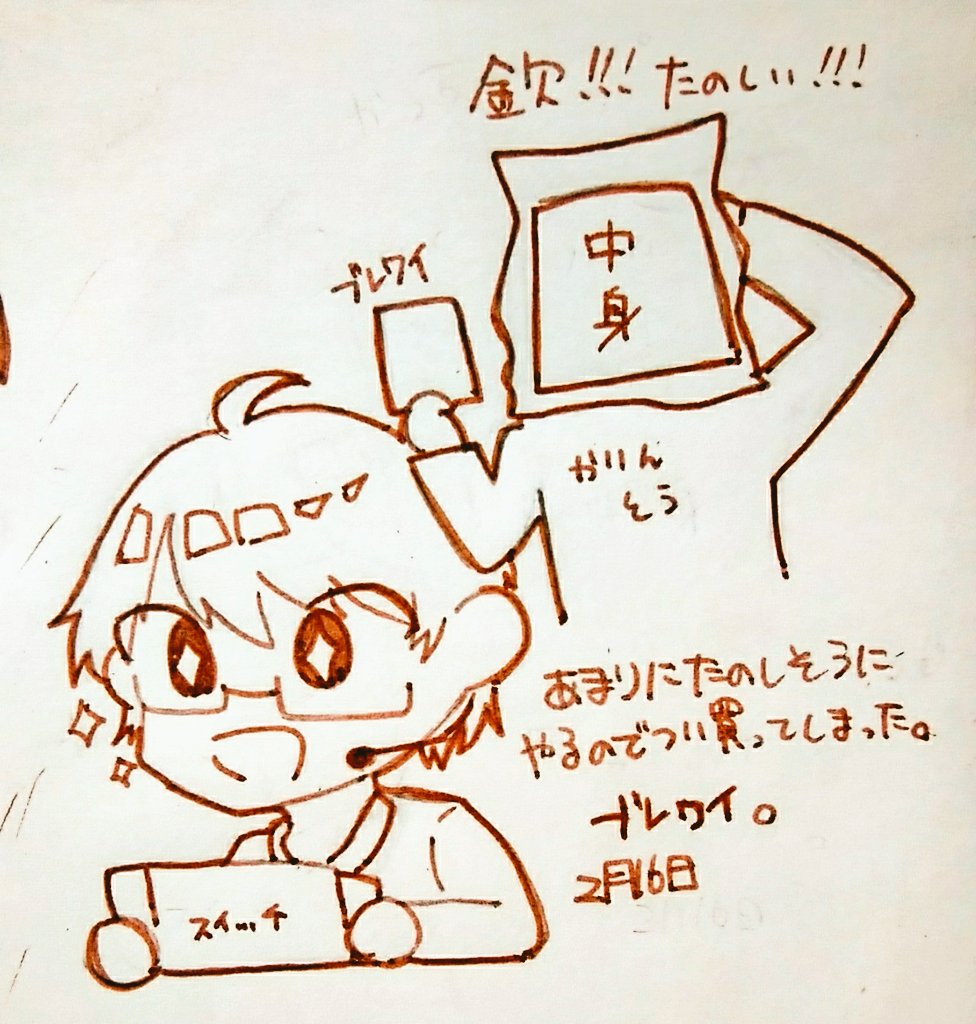 金欠!!! たのしい!!!
中
身
ブレワイ
かいん
そう
あまりにたのしそうに
やるのでつい買ってしまった。
ブレワイ。
2月16日
スイッチ